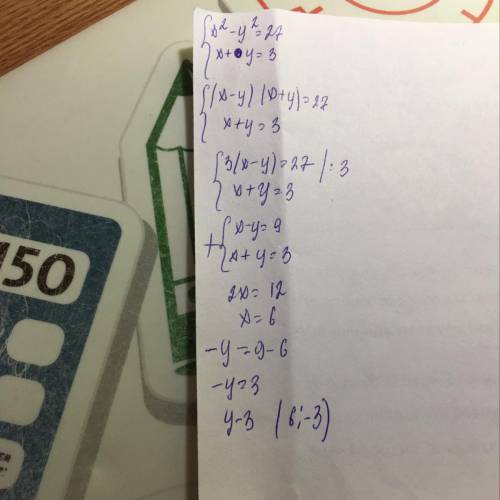 x² - y² = 27
x + y = 3
(x-y)(x+y) = 27
x+y = 3
3(x-y) = 27 | : 3
x+y = 3
+ x-y = 9
x+y = 3
2x = 12
x = 6
-y = 9-6
-y = 3
y-3 (6;-3)
150